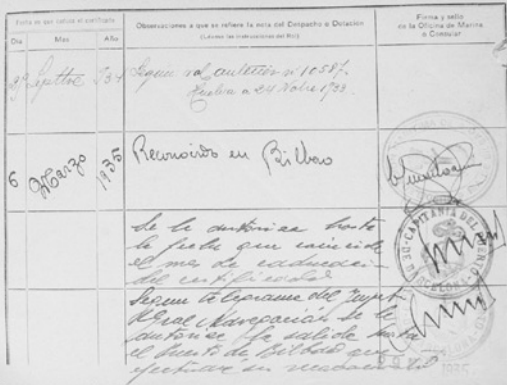 Fecha en que caduca el certificado
Dia Mes Año
Observaciones a que se refiere la nota del Despacho o Dotación
(Léanse las instrucciones del Rol)
Firma y sello
de la Oficina de Marina
o Consular
Segun rol anterior nº 10587.
Huelva a 24 Nobre 1933.
6 Marzo 1935 Reconocido en Bilbao
Se le autoriza hasta
la fecha que coincide
el mes de caducacion
del certificado
Segun telegrama del Inspet.
Gral Navegación se le
autoriza la salida hasta
el puerto de Bilbao que
efectuará su reconocido
CAPITANIA DEL PUERTO DE BARCELONA
1935